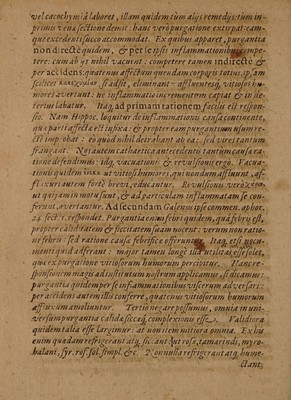 vel cacochymiâ labores, illam quidem tum alijs remedijs: tum in-
primis venæ sectione demit: hanc vero purgatione extirpat: eam-
que excedenti succo accommodat. Ex quibus apparet, purgantia
non directe quidem, & per se ipsi inflammationibus compe-
tere: cum ab ijs nihil vacuent: competere tamen indirecte &
per accidens: quatenus affectum quendam corporis totius,
scilicet si adsit, eliminant: affluentesq; vitiosos humo-
res avertant: ne inflammationis rementem capiat & in de-
terius labatur. Itaq; ad primam rationem facile est respon-
sio. Nam Hippoc. loquitur de inflammationis causa continente,
quæ parti affecta est infixa: & propterea in purgantium usum re-
ctè improbat: eo quod nihil detrahant ab ea: sed vires tantum
frangant. Nos autem calefacta antecedentis tantum causæ ra-
tione defendimus: idq; vacuationis & revulsionis ergo. Vacua-
tionis quidem ut vitiosi humores, qui nondum affluunt, af-
fluxuri autem fortè brevi, educantur. Revulsionis verò
qui jam in motu sunt, & ad particulam inflammatam se con-
ferunt, avertantur. Ad secundam Galenus ipse commen. aphor.
24 sect. 1. respondet. Purgantia enim febri quidem, quà febris est,
propter caliditatem & siccitatem suam nocent: verum non ratio-
ne febris: sed ratione causæ febrificæ offeruntur. Itaq; etsi nocu-
menti quid afferant: major tamen longè illa utilitas esse solet,
quæ ex purgatione vitiosorum humorum percipitur. Hanc re-
sponsionem magis ad institutum nostrum applicamus, si dicamus:
purgantia quidem per se inflammationibus viscerum adversari:
per accidens autem illis conferre, quatenus vitiosorum humorum
affluxum amoliuntur. Tertio negare possumus, omnia in uni-
versum purgantia calida siccaq; complexionis esse. Validiora
quidem talia esse largimur: at non item mitiora omnia. Ex his
enim quædam refrigerant atq; siccant ut rosa, tamarindi, myro-
balani, syr. ros. sol. simpl. &c. Nonnulla refrigerant atq; hume-
ctant;